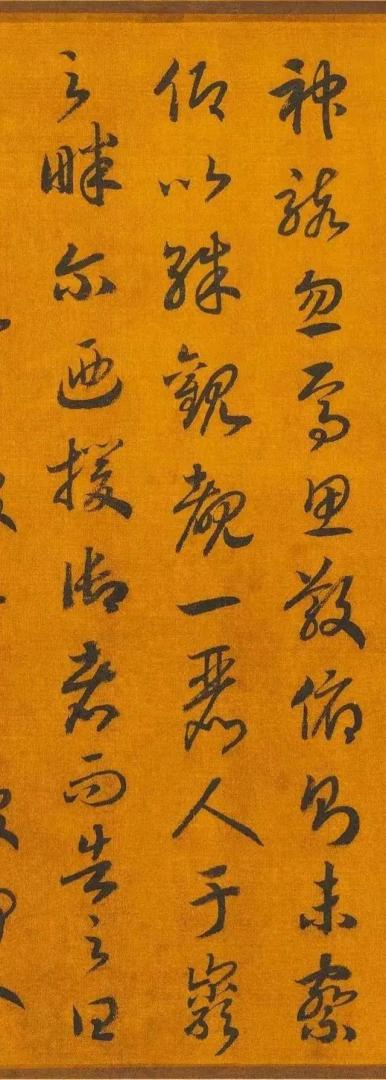 神骇忽焉思散俯则未察
仰以殊觀覩一麗人于巖
之畔尔迺援御者而告之曰